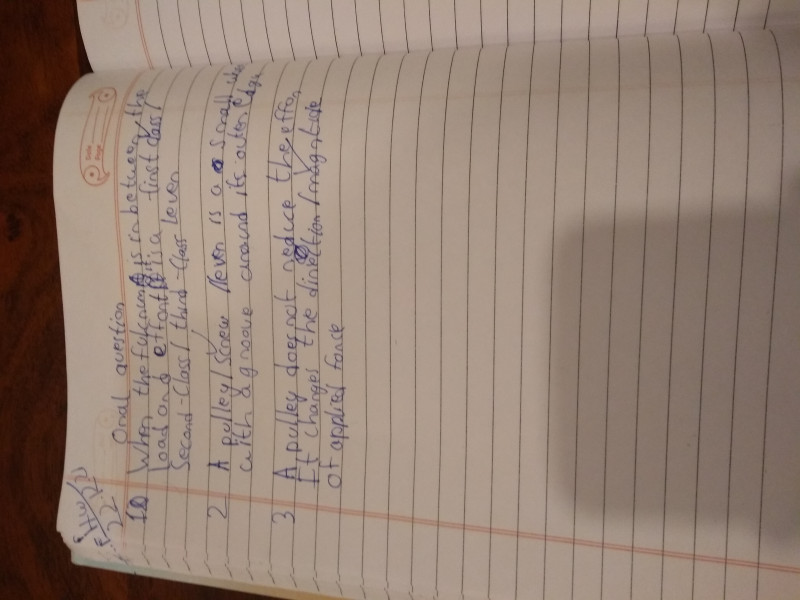 HW
22.7.
Oral question
1 When the fulcrum is in between the
load and effort it is a first class/
Second-Class/ third-Class Lever
2 A pulley/ Screw lever is a small
with a groove around its outer edge
3 A pulley does not reduce the effort
It changes the direction/magnitude
of applied force